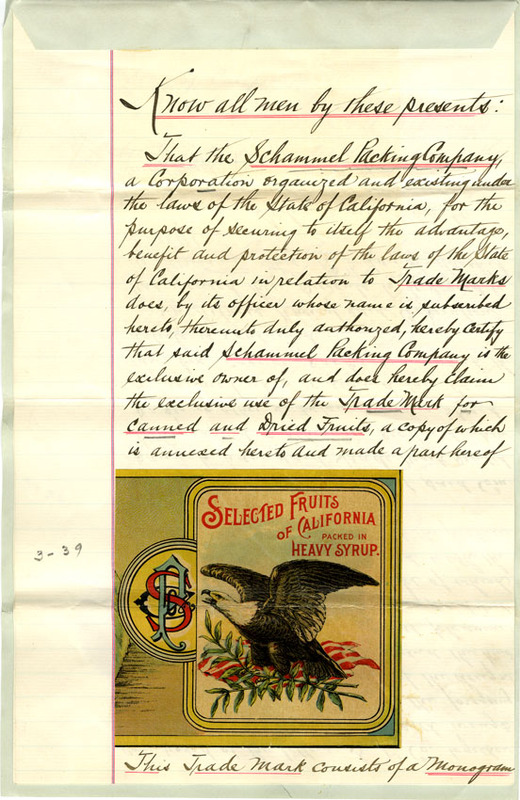 Know all men by these presents:
That the Schammel Packing Company,
a Corporation organized and existing under
the laws of the State of California, for the
purpose of securing to itself the advantage,
benefit and protection of the laws of the State
of California in relation to Trade Marks
does, by its officer whose name is subscribed
hereto, thereunto duly authorized, hereby certify
that said Schammel Packing Company is the
exclusive owner of, and does hereby claim
the exclusive use of the Trade Mark for
canned and Dried Fruits, a copy of which
is annexed hereto and made a part hereof
3-39
SELECTED FRUITS
OF CALIFORNIA
PACKED IN
HEAVY SYRUP.
This Trade Mark consists of a Monogram